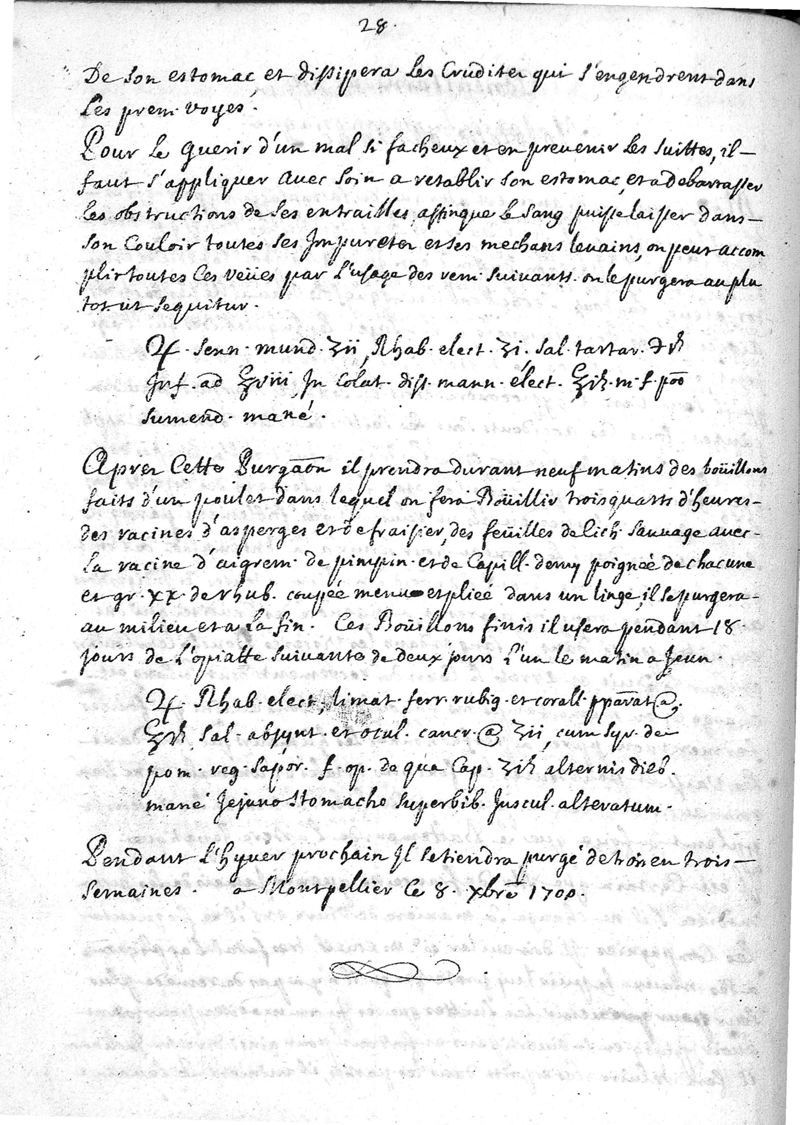 28.
De son estomac et dissipera les Cruditez qui s'engendrent dans
les prem. voyes.
Pour le guerir d'un mal si facheux et en prevenir les suittes, il
faut s'appliquer avec soin a retablir son estomac, et a debarrasser
les obstructions de ses entrailles, affinque le sang puisse laisser dans
son Couloir toutes ses Impuretez et ses mechans levains, on peut accom
plir toutes ces veües par l'usage des rem. suivants. on le purgera au plu
tot. ut sequitur.
♃. senn. mund. ʒii, Rhab. elect. ʒi. sal. tartar. ℈ß
Inf. ad ℥viii, In Colat. diss. mann. elect. ℥iß. m. f. poõ
sumend. mané.
Aprez Cette Purgãon il prendra durant neuf matins des boüillons
faits d'un poulet dans lequel on fera Boüillir trois quarts d'heures
des racines d'asperges et de fraisier, des feüilles de lich. sauvage avec
la racine d'aigrem. de pimpin. et de Capill. demy poignée de chacune
et gr. xx. de rhub. coupée menu et pliée dans un linge, il se purgera
au milieu et a la fin. Ces Boüillons finis il usera pendant 18
jours de l'opiatte suivante de deux jours l'un le matin a Jeun.
♃. Rhab. elect, limat. ferr. rubig. et corall. pparat @,
℥ß, sal. absynt. et ocul. cancr. @ ʒii, cum syr. de
pom. reg. sapor. f. op. de qua Cap. ʒiß alternis dieb.
mané Jejuno stomacho superbib. Juscul. alteratum.
Pendant l'hyver prochain Il se tiendra purgé de trois en trois
semaines. a Montpellier le 8. xbre 1700.